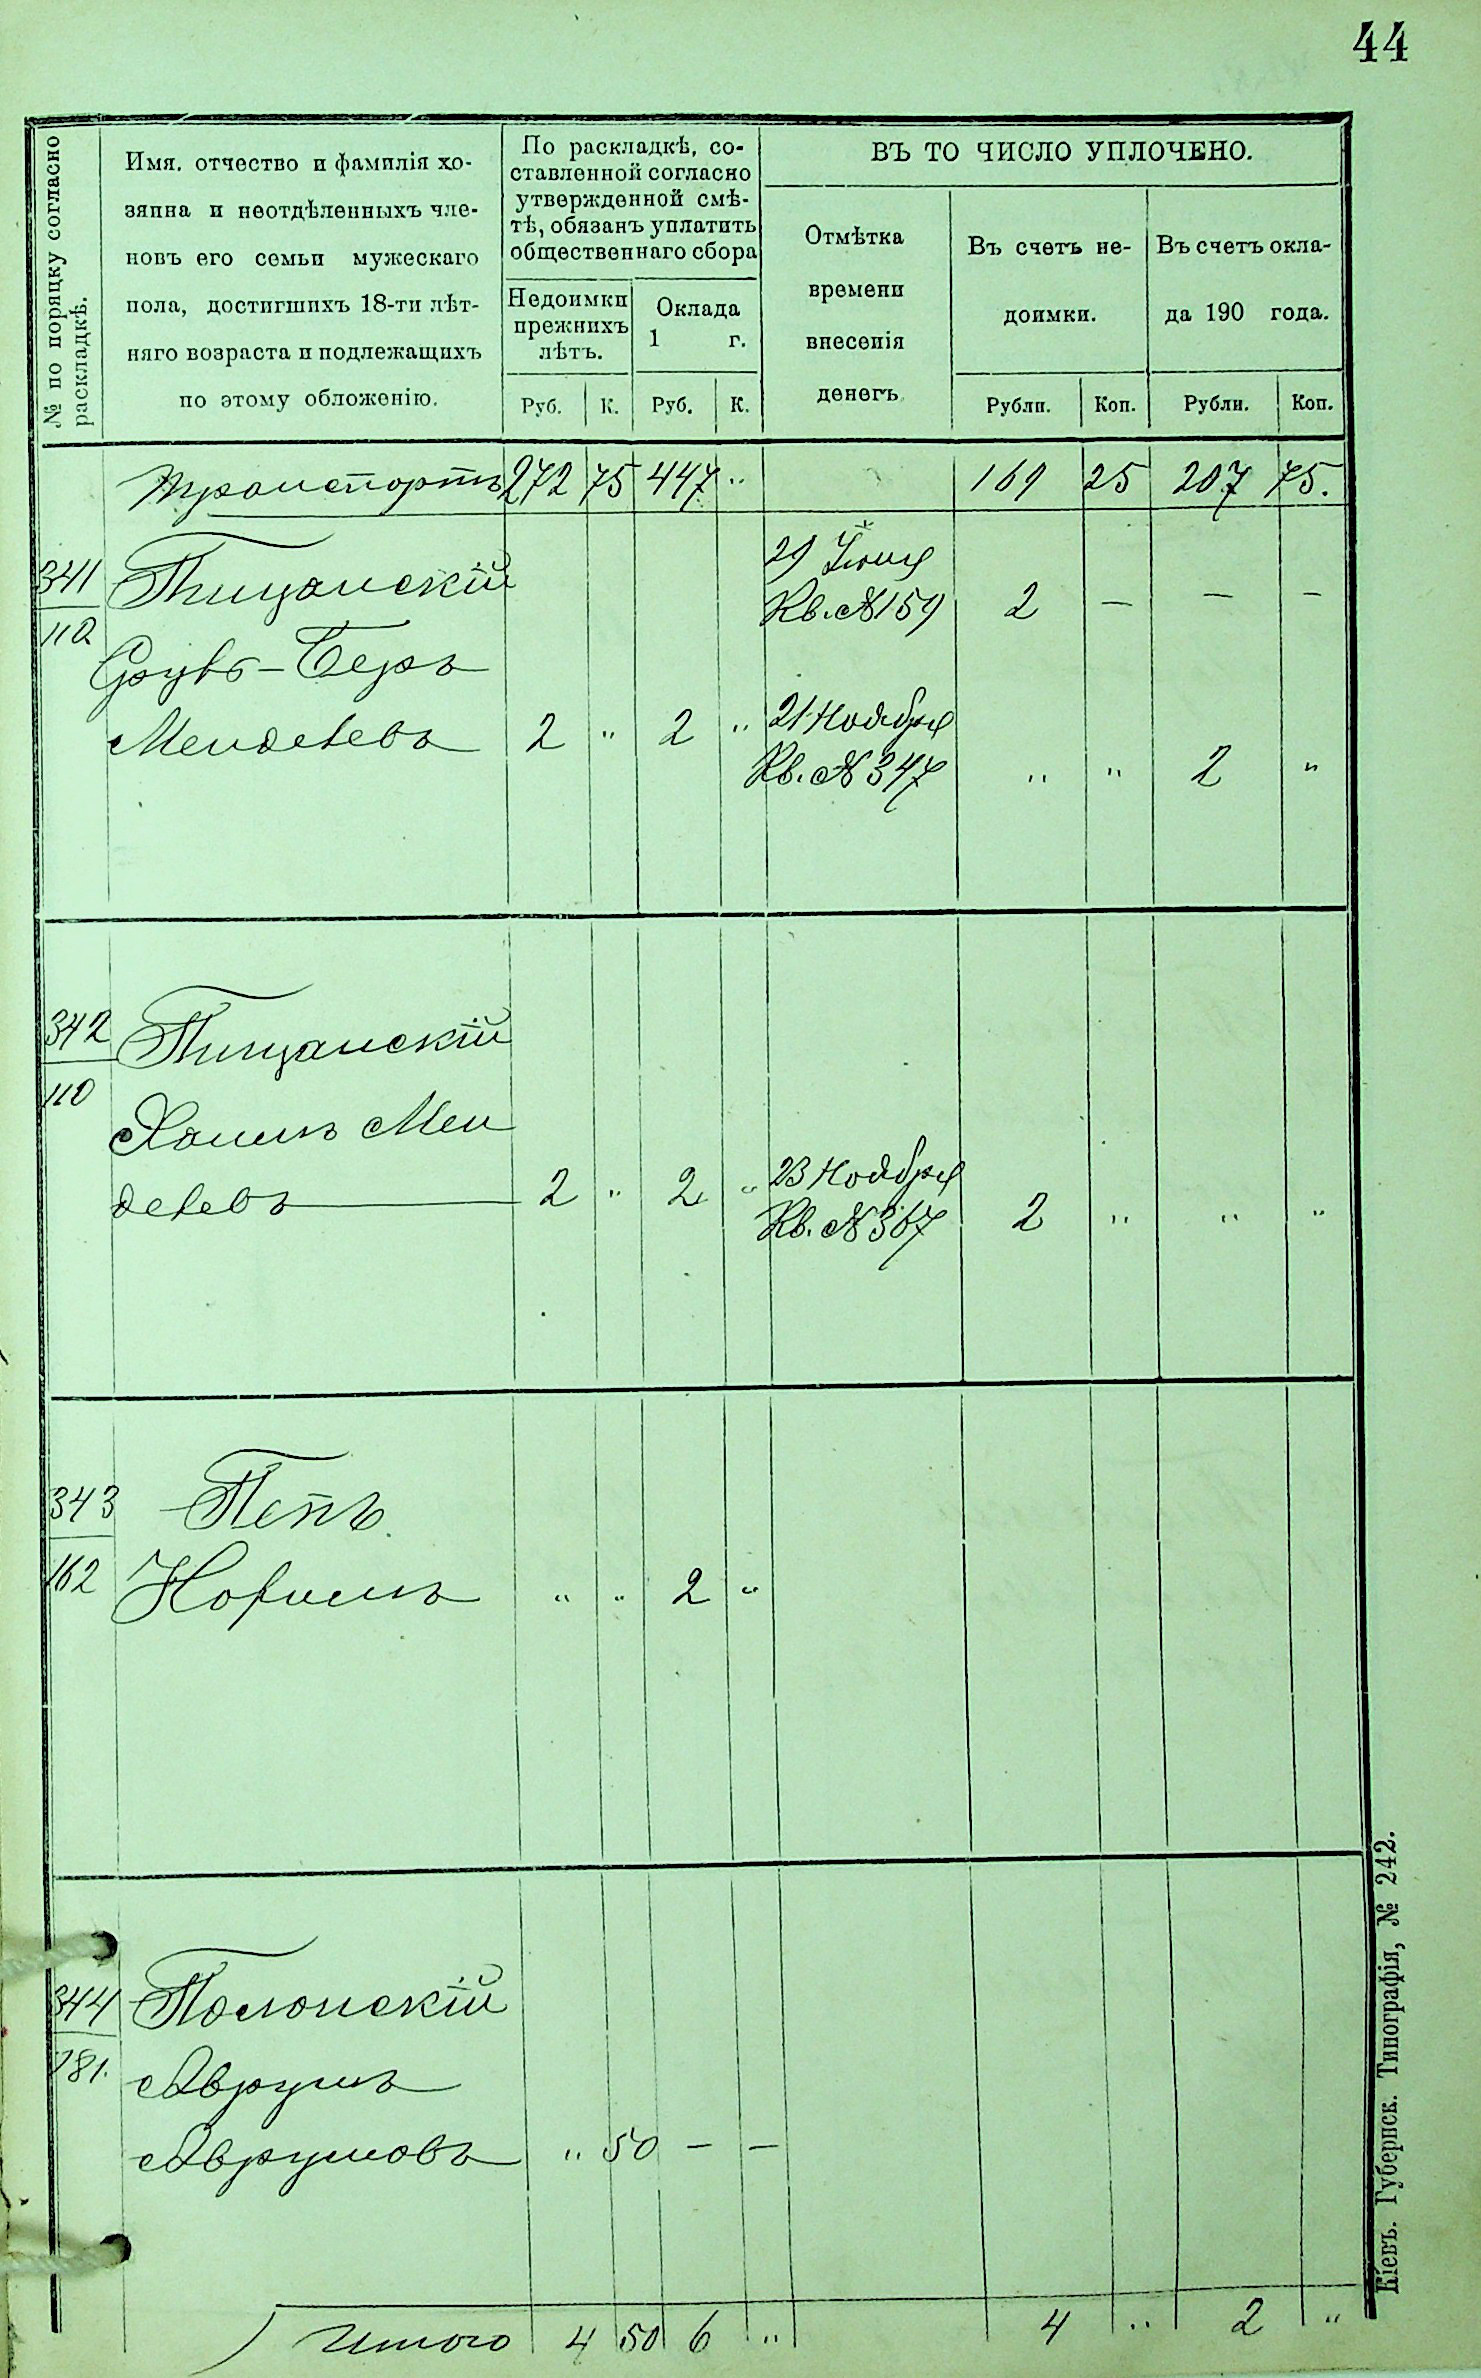 44
№ по порядку согласно
раскладкѣ.
Имя, отчество и фамилія хо-
зяина и неотдѣленныхъ чле-
новъ его семьи мужескаго
пола, достигшихъ 18-ти лѣт-
няго возраста и подлежащихъ
по этому обложенію.
По раскладкѣ, со-
ставленной согласно
утвержденной смѣ-
тѣ, обязанъ уплатить
общественнаго сбора
Недоимки
прежнихъ
лѣтъ.
Оклада
1 г.
Руб. К. Руб. К.
ВЪ ТО ЧИСЛО УПЛОЧЕНО.
Отмѣтка
времени
внесенія
денегъ
Въ счетъ не-
доимки.
Въ счетъ окла-
да 190 года.
Рубли. Коп. Рубли. Коп.
Транспортъ 272 75 447 " 169 25 207 75.
341 Пищанскій 29 Іюня
110 Кв. № 159 2 — — —
Сруль-Беръ
Менделевъ 2 " 2 " 21 Ноября
Кв. № 347 " " 2 "
342 Пищанскій
110
Хаимъ Мен
делевъ 2 " 2 " 23 Ноября
Кв. № 367 2 " " "
343 Пепъ
162 Нофимъ " " 2 "
344 Полонскій
281. Аврумъ
Аврумовъ " 50 — —
Итого 4 50 6 " 4 " 2 "
Кіевъ. Губернск. Типографія, № 242.